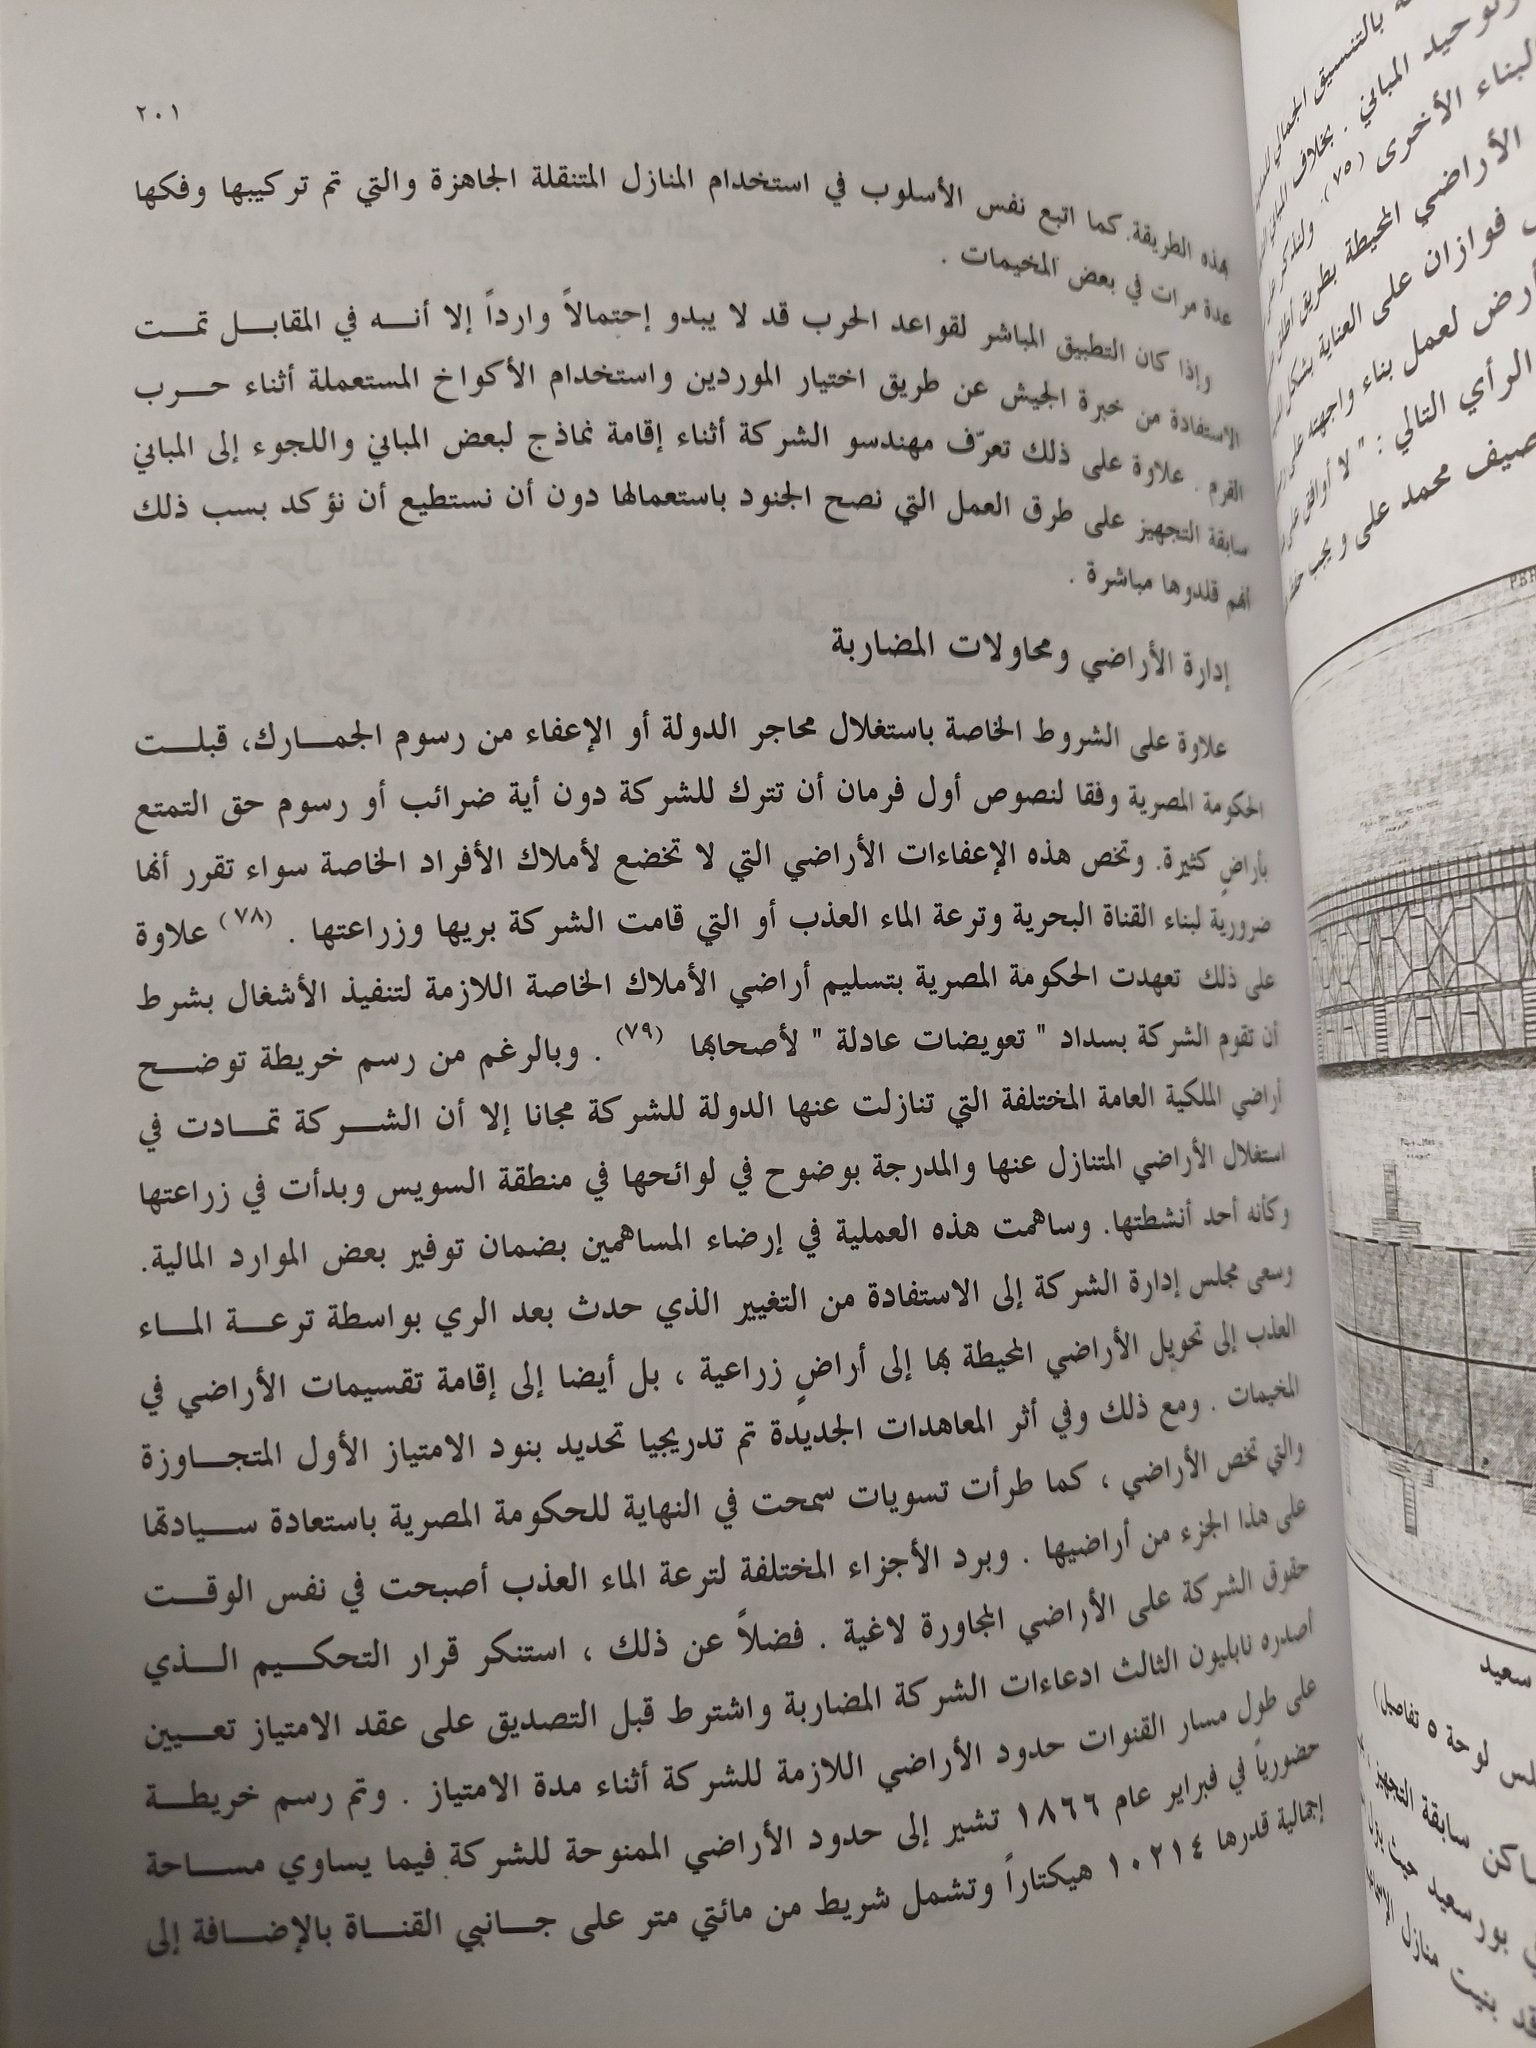 ٢٠١
بهذه الطريقة. كما اتبع نفس الأسلوب في استخدام المنازل المتنقلة الجاهزة والتي تم تركيبها وفكها
عدة مرات في بعض المخيمات .
وإذا كان التطبيق المباشر لقواعد الحرب قد لا يبدو إحتمالاً وارداً إلا أنه في المقابل تمت
الاستفادة من خبرة الجيش عن طريق اختيار الموردين واستخدام الأكواخ المستعملة أثناء حرب
القرم . علاوة على ذلك تعرّف مهندسو الشركة أثناء إقامة نماذج لبعض المباني واللجوء إلى المباني
سابقة التجهيز على طرق العمل التي نصح الجنود باستعمالها دون أن نستطيع أن نؤكد بسب ذلك
أنهم قلدوها مباشرة .
إدارة الأراضي ومحاولات المضاربة
علاوة على الشروط الخاصة باستغلال محاجر الدولة أو الإعفاء من رسوم الجمارك، قبلت
الحكومة المصرية وفقا لنصوص أول فرمان أن تترك للشركة دون أية ضرائب أو رسوم حق التمتع
بأراضٍ كثيرة. وتخص هذه الإعفاءات الأراضي التي لا تخضع لأملاك الأفراد الخاصة سواء تقرر أنها
ضرورية لبناء القناة البحرية وترعة الماء العذب أو التي قامت الشركة بريها وزراعتها . (٧٨) علاوة
على ذلك تعهدت الحكومة المصرية بتسليم أراضي الأملاك الخاصة اللازمة لتنفيذ الأشغال بشرط
أن تقوم الشركة بسداد " تعويضات عادلة " لأصحابها (٧٩) . وبالرغم من رسم خريطة توضح
أراضي الملكية العامة المختلفة التي تنازلت عنها الدولة للشركة مجانا إلا أن الشركة تمادت في
استغلال الأراضي المتنازل عنها والمدرجة بوضوح في لوائحها في منطقة السويس وبدأت في زراعتها
وكأنه أحد أنشطتها. وساهمت هذه العملية في إرضاء المساهمين بضمان توفير بعض الموارد المالية.
وسعى مجلس إدارة الشركة إلى الاستفادة من التغيير الذي حدث بعد الري بواسطة ترعة الماء
العذب إلى تحويل الأراضي المحيطة بها إلى أراضٍ زراعية ، بل أيضا إلى إقامة تقسيمات الأراضي في
المخيمات . ومع ذلك وفي أثر المعاهدات الجديدة تم تدريجيا تحديد بنود الامتياز الأول المتجاوزة
والتي تخص الأراضي ، كما طرأت تسويات سمحت في النهاية للحكومة المصرية باستعادة سيادتها
على هذا الجزء من أراضيها . وبرد الأجزاء المختلفة لترعة الماء العذب أصبحت في نفس الوقت
حقوق الشركة على الأراضي المجاورة لاغية . فضلاً عن ذلك ، استنكر قرار التحكيم الذي
أصدره نابليون الثالث ادعاءات الشركة المضاربة واشترط قبل التصديق على عقد الامتياز تعيين
على طول مسار القنوات حدود الأراضي اللازمة للشركة أثناء مدة الامتياز . وتم رسم خريطة
حضورياً في فبراير عام ١٨٦٦ تشير إلى حدود الأراضي الممنوحة للشركة فيما يساوي مساحة
إجمالية قدرها ١٠٢١٤ هيكتاراً وتشمل شريط من مائتي متر على جانبي القناة بالإضافة إلى
بالتنسيق الجمالي
وتوحيد المباني . بخلاف المباني
البناء الأخرى (٧٥). ولنذكر
الأراضي المحيطة بطريق
فوازان على العناية بشكل
أرض لعمل بناء واجهته على
الرأي التالي : " لا أوافق على
رصيف محمد على ويجب
سعيد
لوحة ٥ تفاصيل)
سابقة التجهيز
بورسعيد حيث
بنيت منازل